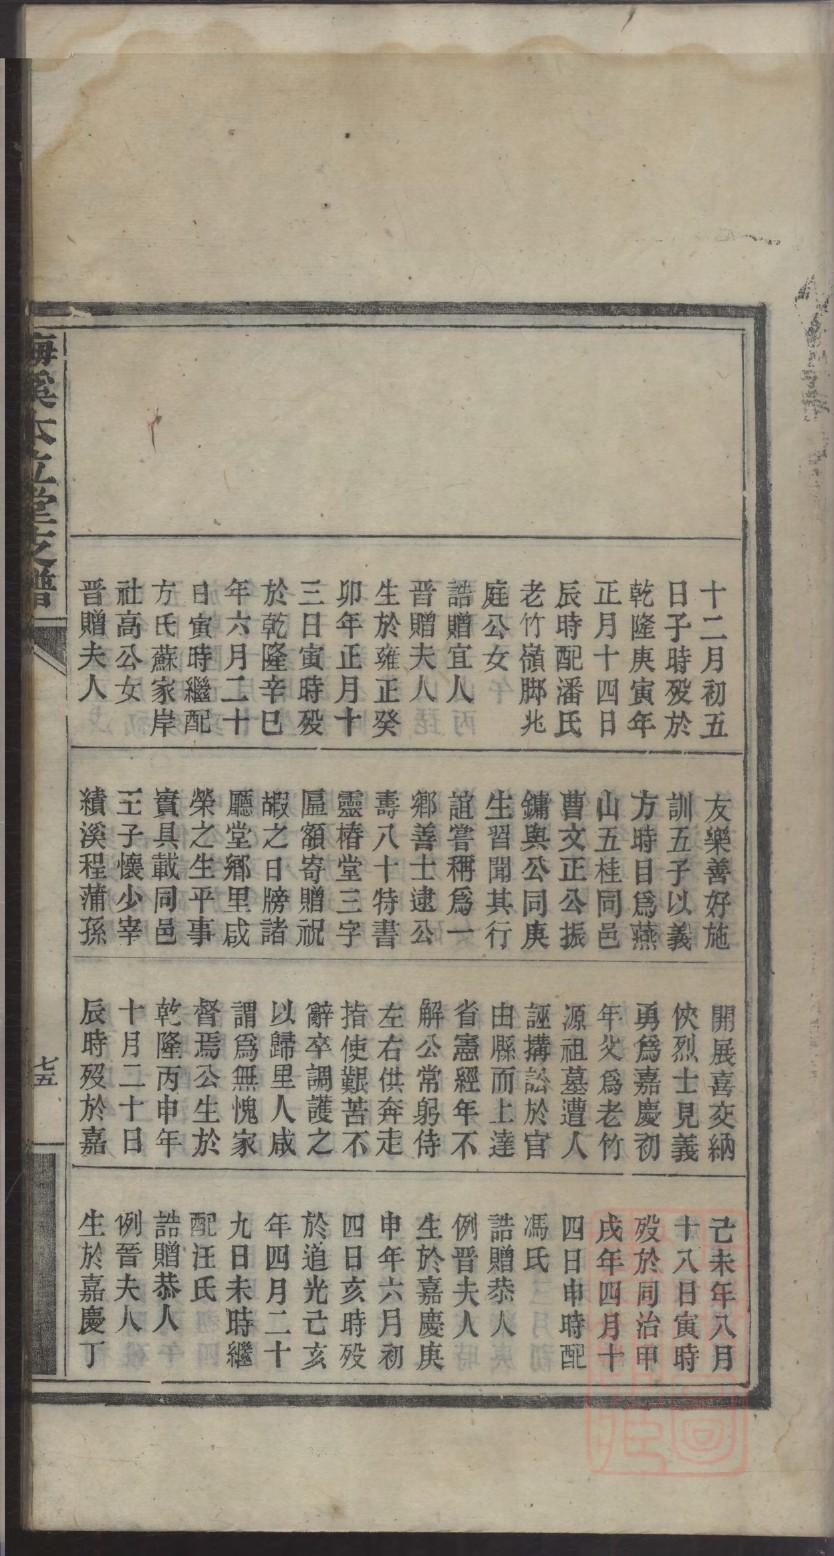 十二月初五
日子時歿於
乾隆庚寅年
正月十四日
辰時配潘氏
老竹嶺脚兆
庭公女
誥贈宜人
晋贈夫人
生於雍正癸
卯年正月十
三日寅時歿
於乾隆辛巳
年六月二十
日寅時繼配
方氏蘇家岸
社高公女
晋贈夫人
友樂善好施
訓五子以義
方時目爲燕
山五桂同邑
曹文正公振
鏞與公同庚
生習聞其行
誼嘗稱爲一
鄉善士逮公
壽八十特書
靈椿堂三字
匾額寄贈祝
嘏之日牓諸
廳堂鄉里咸
榮之生平事
實具載同邑
王子懷少宰
績溪程蒲孫
開展喜交納
俠烈士見義
勇爲嘉慶初
年父爲老竹
源祖墓遭人
誣搆訟於官
由縣而上達
省憲經年不
解公常躬侍
左右供奔走
指使艱苦不
辭卒調護之
以歸里人咸
謂爲無愧家
督焉公生於
乾隆丙申年
十月二十日
辰時歿於嘉
己未年八月
十八日寅時
歿於同治甲
戌年四月十
四日申時配
馮氏
誥贈恭人
例晋夫人
生於嘉慶庚
申年六月初
四日亥時歿
於道光己亥
年四月二十
九日未時繼
配汪氏
誥贈恭人
例晉夫人
生於嘉慶丁
梅溪本立堂支譜
七五